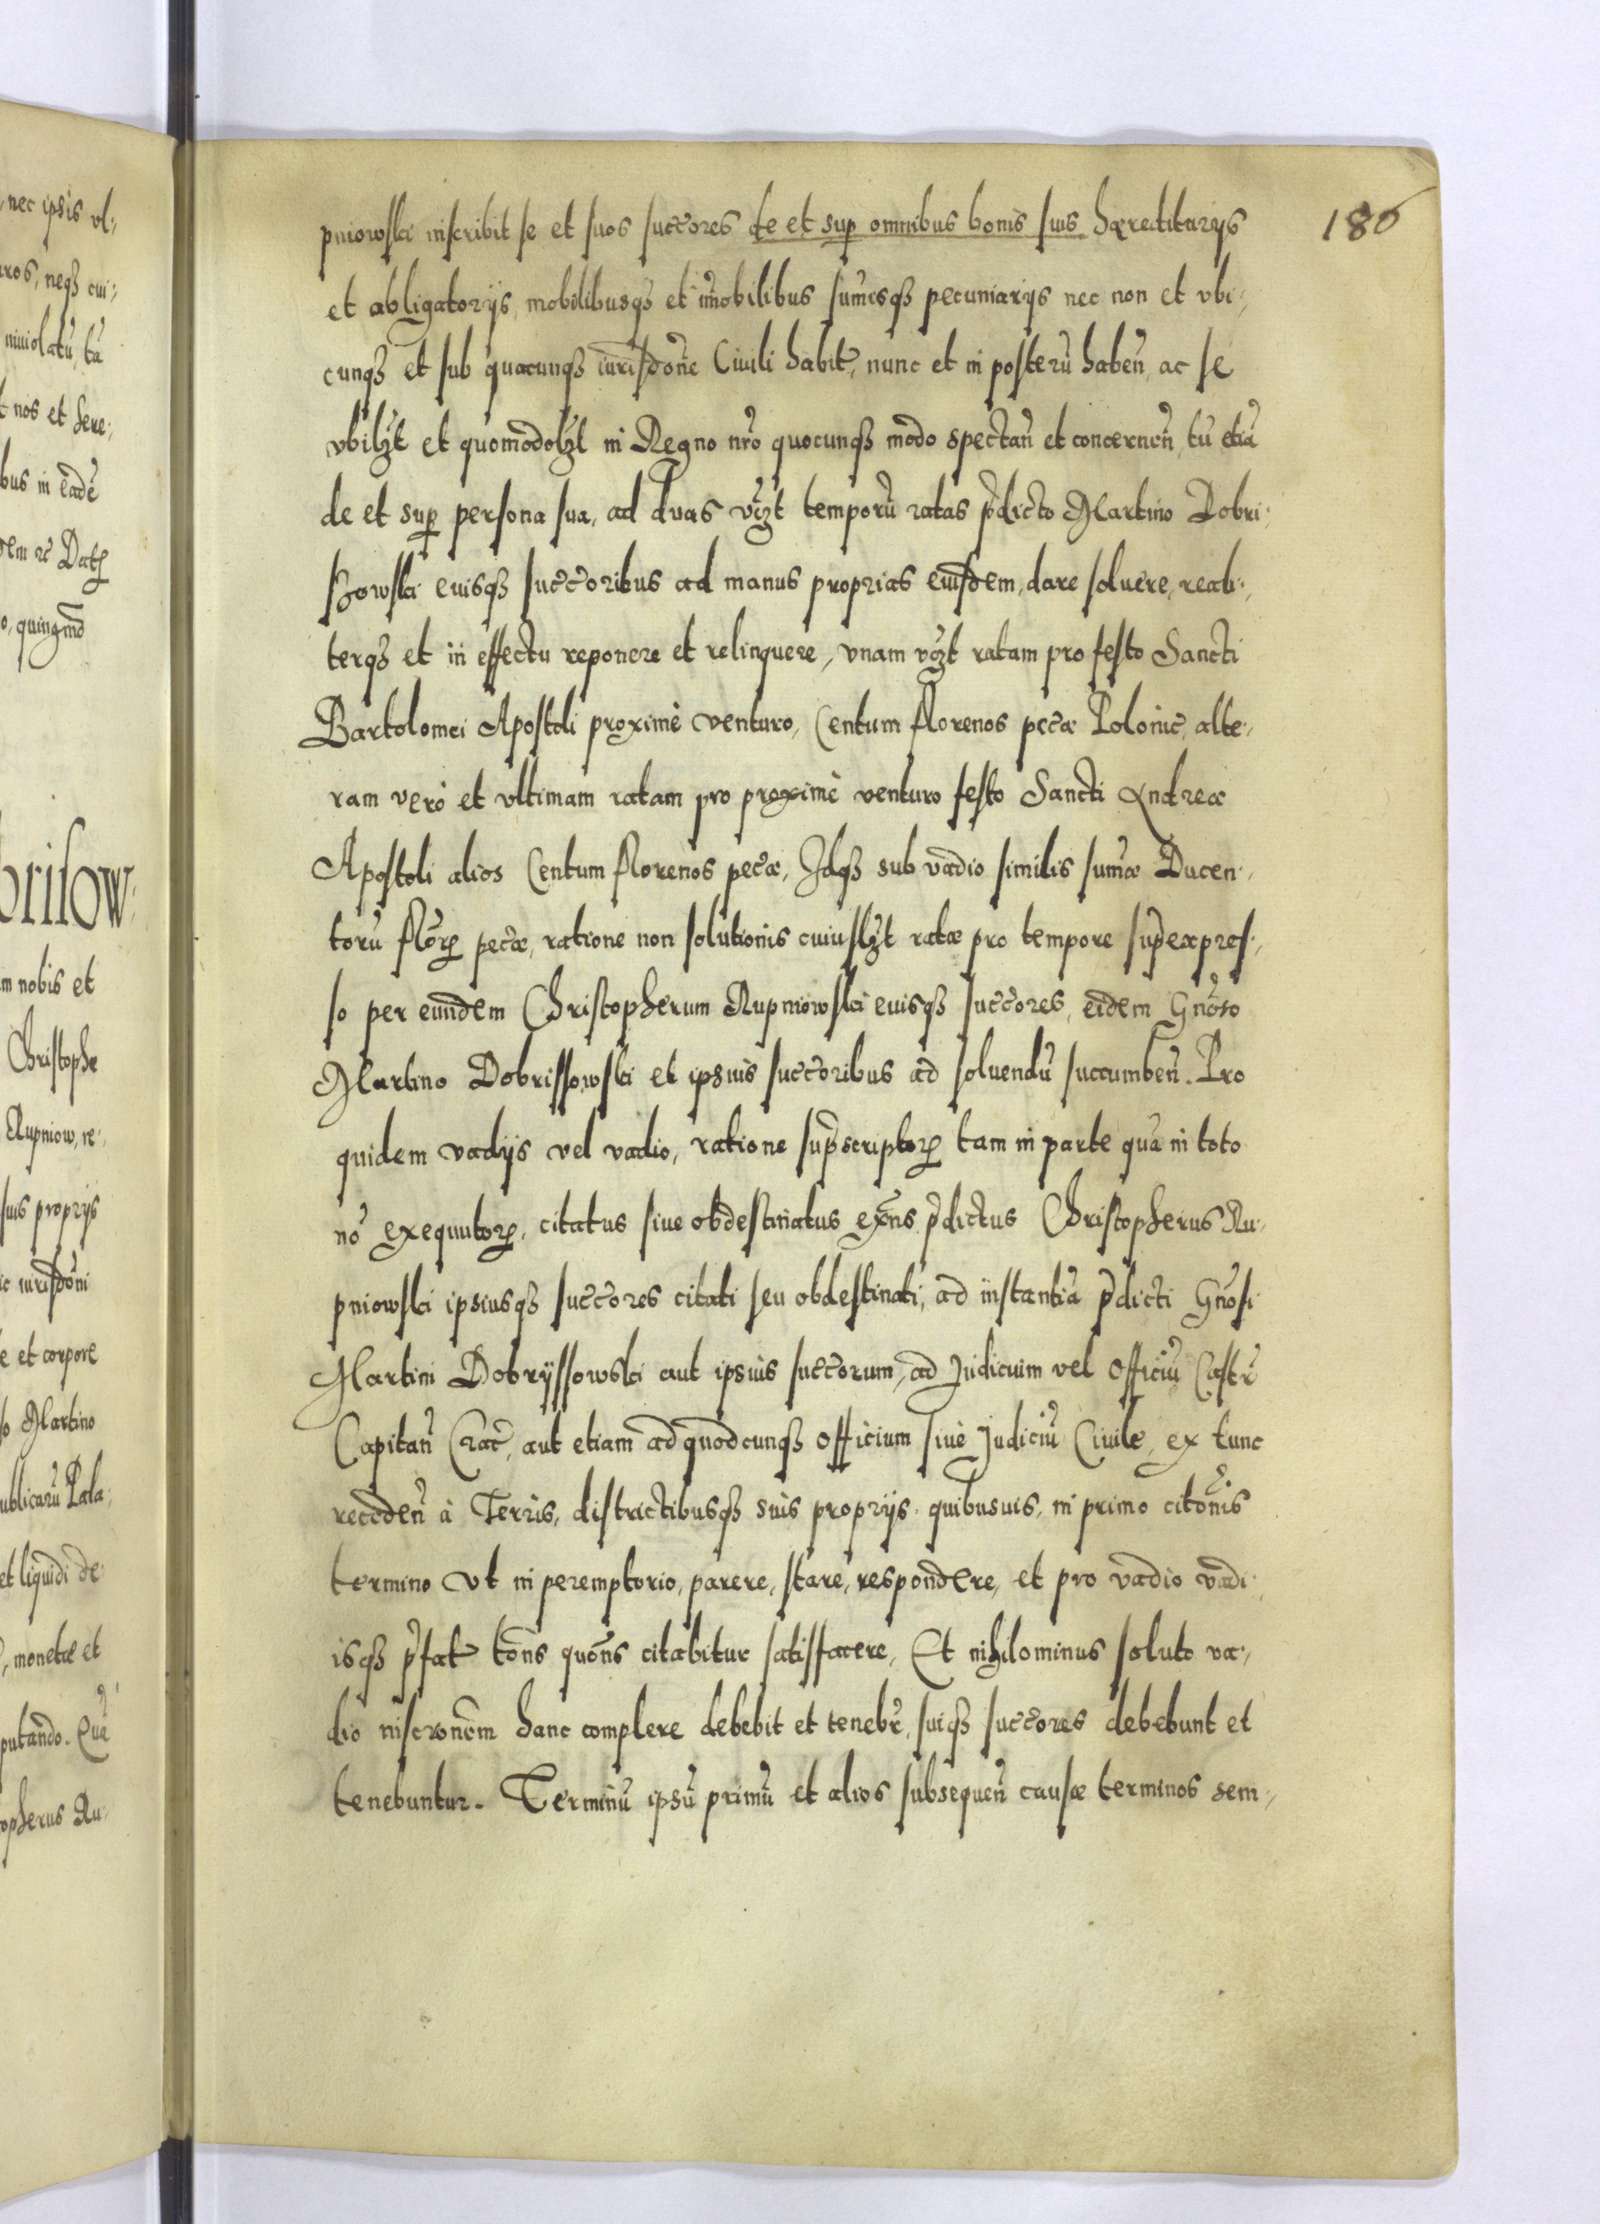 nec ipsis vl:
uros, neqȝ cui:
inuiolatũ, tã
et nos et Sere:
bus in eadẽ
Datꝫ
o, quingmo
brisow:
m nobis et
Christophe
Rupniow, re:
suis proprijs
iurisdõni
e et corpore
so Martino
ublicarũ Pala:
et liquidi de:
, monetæ et
putando. Quẽ
topherus Ru:
180
pniowski inscribit se et suos succõres de et sup omnibus bonis suis hæreditarijs
et obligatorijs, mobilibusqȝ et im̃obilibus sum̃isqȝ pecuniarijs nec non et vbi:
cunqȝ et sub quacunqȝ iurisdõne Ciuili habit̃, nunc et in posterũ habeñ, ac se
vbilȝt et quomodolȝt in Regno nr̃o quocunqȝ modo spectañ et concerneñ, tũ etiã
de et sup persona sua, ad duas vȝt temporũ ratas p̃dicto Martino Dobri:
szowski eiusqȝ succõribus ad manus proprias eiusdem, dare soluere, reali:
terqȝ et in effectu reponere et relinquere, vnam vȝt ratam pro festo Sancti
Bartolomei Apostoli proximè venturo, Centum florenos pec̃æ Polonic̃, alte:
ram verò et vltimam ratam pro proximè venturo festo Sancti Andreæ
Apostoli alios Centum florenos pec̃æ, Idqȝ sub vadio similis sum̃æ Ducen:
torũ flor̃ꝝ pec̃æ, ratione non solutionis cuiuslȝt ratæ pro tempore sup̃expres:
so per eundem Christopherum Rupniowski eiusqȝ succõres, eidem Gnõso
Martino Dobrissowski et ipsius succõribus ad soluendũ succumbeñ. Pro
quidem vadijs vel vadio, ratione sup̃scriptorꝝ tam in parte quã in toto
nõ exequutorꝝ, citatus siue obdestinatus exñs p̃dictus Christopherus Ru:
pniowski ipsiusqȝ succõres citati seu obdestinati, ad instantiã p̃dicti Gnõsi
Martini Dobryssowski aut ipsius succõrum, ad Judicium vel Officiũ Castr̃
Capitañ Crac̃, aut etiam ad quodcunqȝ officium siuè Judiciũ Ciuile, ex tunc
recedeñ à Terris, districtibusqȝ suis proprijs quibusuis, in primo citõnis
termino vt in peremptorio, parere, stare, respondere, et pro vadio vadi:
isqȝ p̃fat̃ tõns quõns citabitur satisfacere, Et nihilominus soluto va:
dio inscrõnem hanc complere debebit et tenebr̃, suiqȝ succõres debebunt et
tenebuntur. Terminũ ipsũ primũ et alios subsequeñ causæ terminos sem: